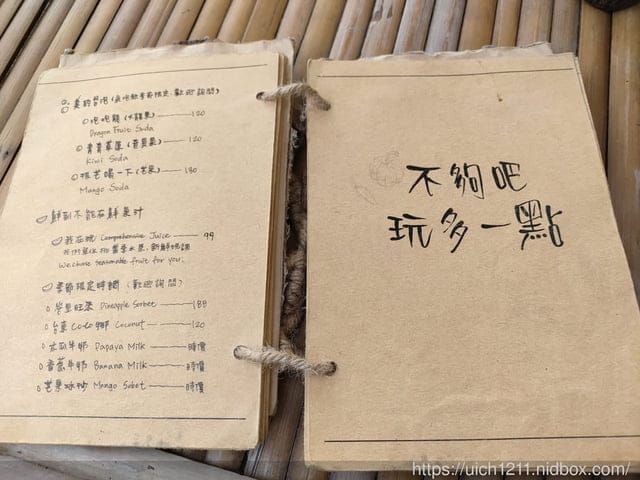 夏的冒泡(氣泡飲季節限定,歡迎詢問)
泡泡龍(火龍果) 120
Dragon Fruit Soda
青青草原(奇異果) 120
Kiwi Soda
忙喝一下(芒果) 180
Mango Soda
鮮到不能在鮮果汁
我在現 Comprehensive Juice 99
We chose seasonable fruit for you.
季節限定特調(歡迎詢問)
岁岁旺来 Pineapple Sorbet 188
台東Coco椰 Coconut 120
木瓜牛奶 Papaya Milk 時價
香蕉牛奶 Banana Milk 時價
芒果冰沙 Mango Sobet 時價
不夠吧
玩多一點
https://uich1211.nidbox.com/